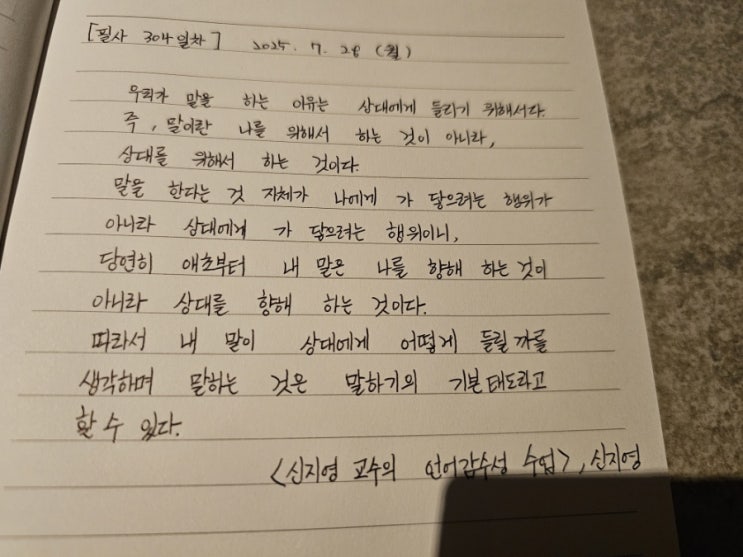 [필사 304일차] 2025. 7. 28 (월)
우리가 말을 하는 이유는 상대에게 들리기 위해서다.
즉, 말이란 나를 위해서 하는 것이 아니라,
상대를 위해서 하는 것이다.
말을 한다는 것 자체가 나에게 가 닿으려는 행위가
아니라 상대에게 가 닿으려는 행위이니,
당연히 애초부터 내 말은 나를 향해 하는 것이
아니라 상대를 향해 하는 것이다.
따라서 내 말이 상대에게 어떻게 들릴까를
생각하며 말하는 것은 말하기의 기본 태도라고
할 수 있다.
<신지영 교수의 언어감수성 수업>, 신지영